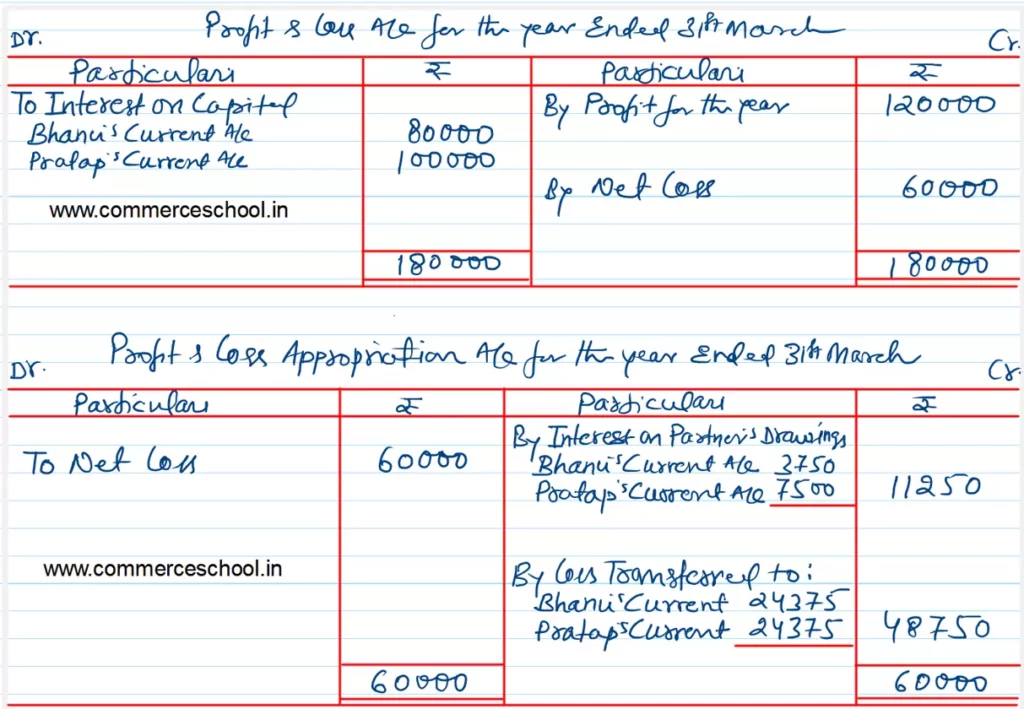 Profit & Loss A/c for the year Ended 31st March
Dr. Cr.
Particulars ₹ Particulars ₹
To Interest on Capital By Profit for the year 120000
Bhanu's Current A/c 80000
Pratap's Current A/c 100000
By Net Loss 60000
www.commerceschool.in
180000 180000
Profit & Loss Appropriation A/c for the year Ended 31st March
Dr. Cr.
Particulars ₹ Particulars ₹
By Interest on Partner's Drawings
To Net Loss 60000 Bhanu's Current A/c 3750
Pratap's Current A/c 7500 11250
www.commerceschool.in By Loss Transferred to:
Bhanu's Current 24375
Pratap's Current 24375 48750
60000 60000